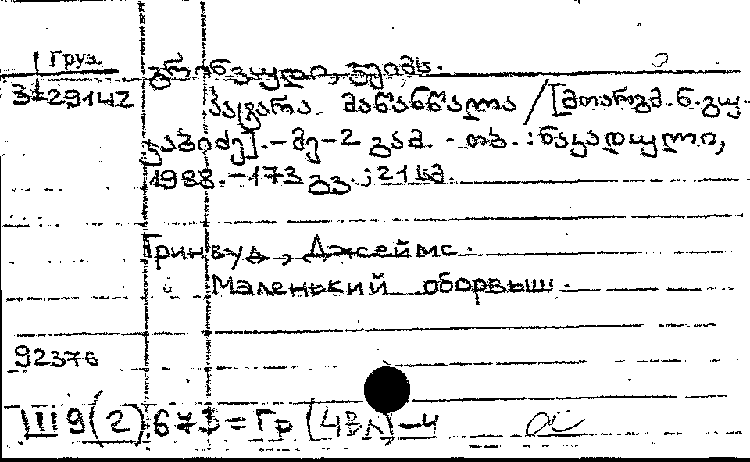 Груз.
გრინვუდი, ჯეიმს.
3-29142
პატარა მაწანწალა / [მთარგმ. ნ. გუ-
ჯაბიძე]. - მე-2 გამ. - თბ. : ნაკადული,
1988. - 173 გვ. ; 21 სმ.
Гринвуд, Джеймс.
Маленький оборвыш.
92376
III 9(2) 673 = Гр (4Вл) - 4